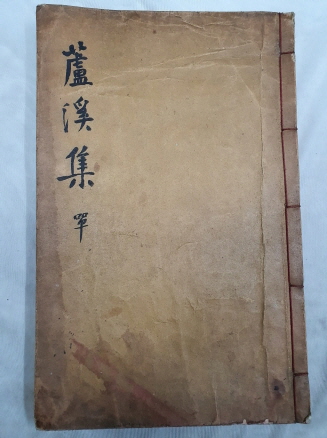 蘆溪集 單